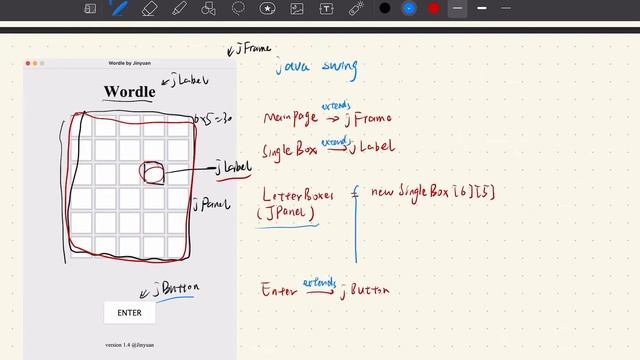 jFrame
Wordle by Jinyuan
jLabel
Wordle
6x5=30
jLabel
jPanel
jButton
ENTER
version 1.4 @Jinyuan
java swing
MainPage extends jFrame
SingleBox extends jLabel
LetterBoxes = new SingleBox[6][5]
(JPanel)
Enter extends jButton